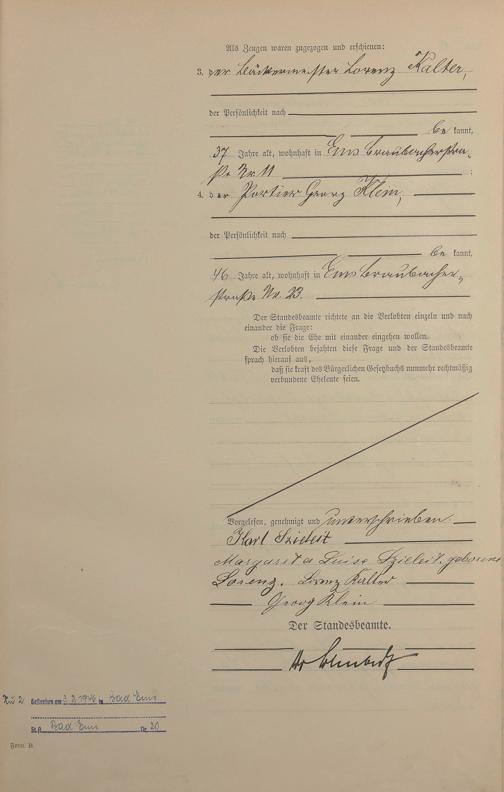 Als Zeugen waren zugezogen und erschienen:
3. der Bäckermeister Lorenz Kalter,
der Persönlichkeit nach
be kannt,
37 Jahre alt, wohnhaft in Ems Braubacherstra-
ße Nr. 11 ;
4. der Portier Georg Klein,
der Persönlichkeit nach
be kannt,
46 Jahre alt, wohnhaft in Ems Braubacher-
straße No. 23.
Der Standesbeamte richtete an die Verlobten einzeln und nach
einander die Frage:
ob sie die Ehe mit einander eingehen wollen.
Die Verlobten bejahten diese Frage und der Standesbeamte
sprach hierauf aus,
daß sie kraft des Bürgerlichen Gesetzbuchs nunmehr rechtmäßig
verbundene Eheleute seien.
Vorgelesen, genehmigt und unterschrieben
Karl Szieleit
Margareta Luise Szieleit, geborene
Lorenz. Lorenz Kalter
Georg Klein
Der Standesbeamte.
Gestorben am 3.2.1946 in Bad Ems
St.A. Bad Ems Nr. 20
Form. B.